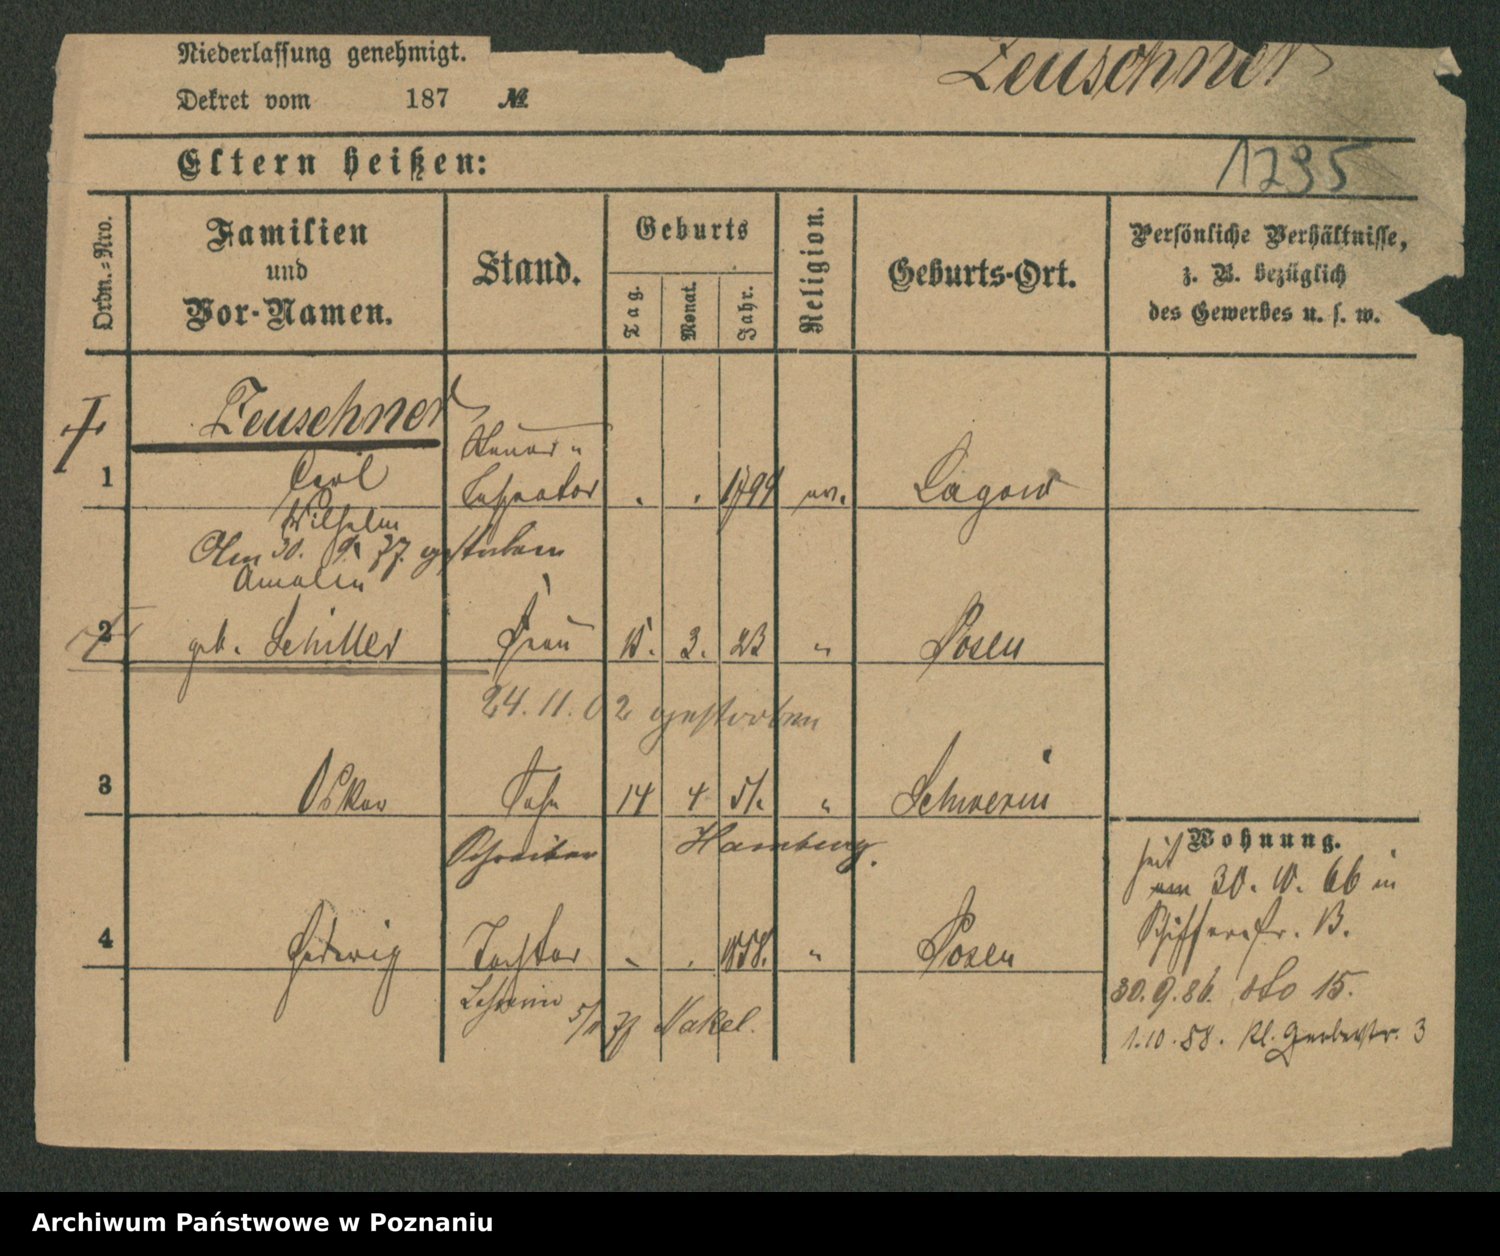 Niederlassung genehmigt.
Dekret vom 187 №
Zeuschner
1295
Eltern heißen:
Ordn.-Nro.
Familien und Vor-Namen.
Stand.
Geburts
Tag. Monat. Jahr.
Religion.
Geburts-Ort.
Persönliche Verhältnisse, z. B. bezüglich des Gewerbes u. s. w.
Zeuschner
Steuer-
1 Carl Inspector . . 1799 ev. Lagow
Wilhelm
Am 30. 9. 77. gestorben
Amalie
2 geb. Schiller Frau 15. 3. 23 " Posen
24. 11. 02 gestorben
3 Oskar Sohn 14 4 51. " Schwerin
Schreiber Hamburg.
4 Hedwig Tochter - . 1858. " Posen
Lehrerin 5/11 77 Nakel.
Wohnung.
seit
am 30. 10. 66 in
Schifferstr. B.
30. 9. 86. dto 15.
1. 10. 88. Kl. Gerberstr. 3
Archiwum Państwowe w Poznaniu